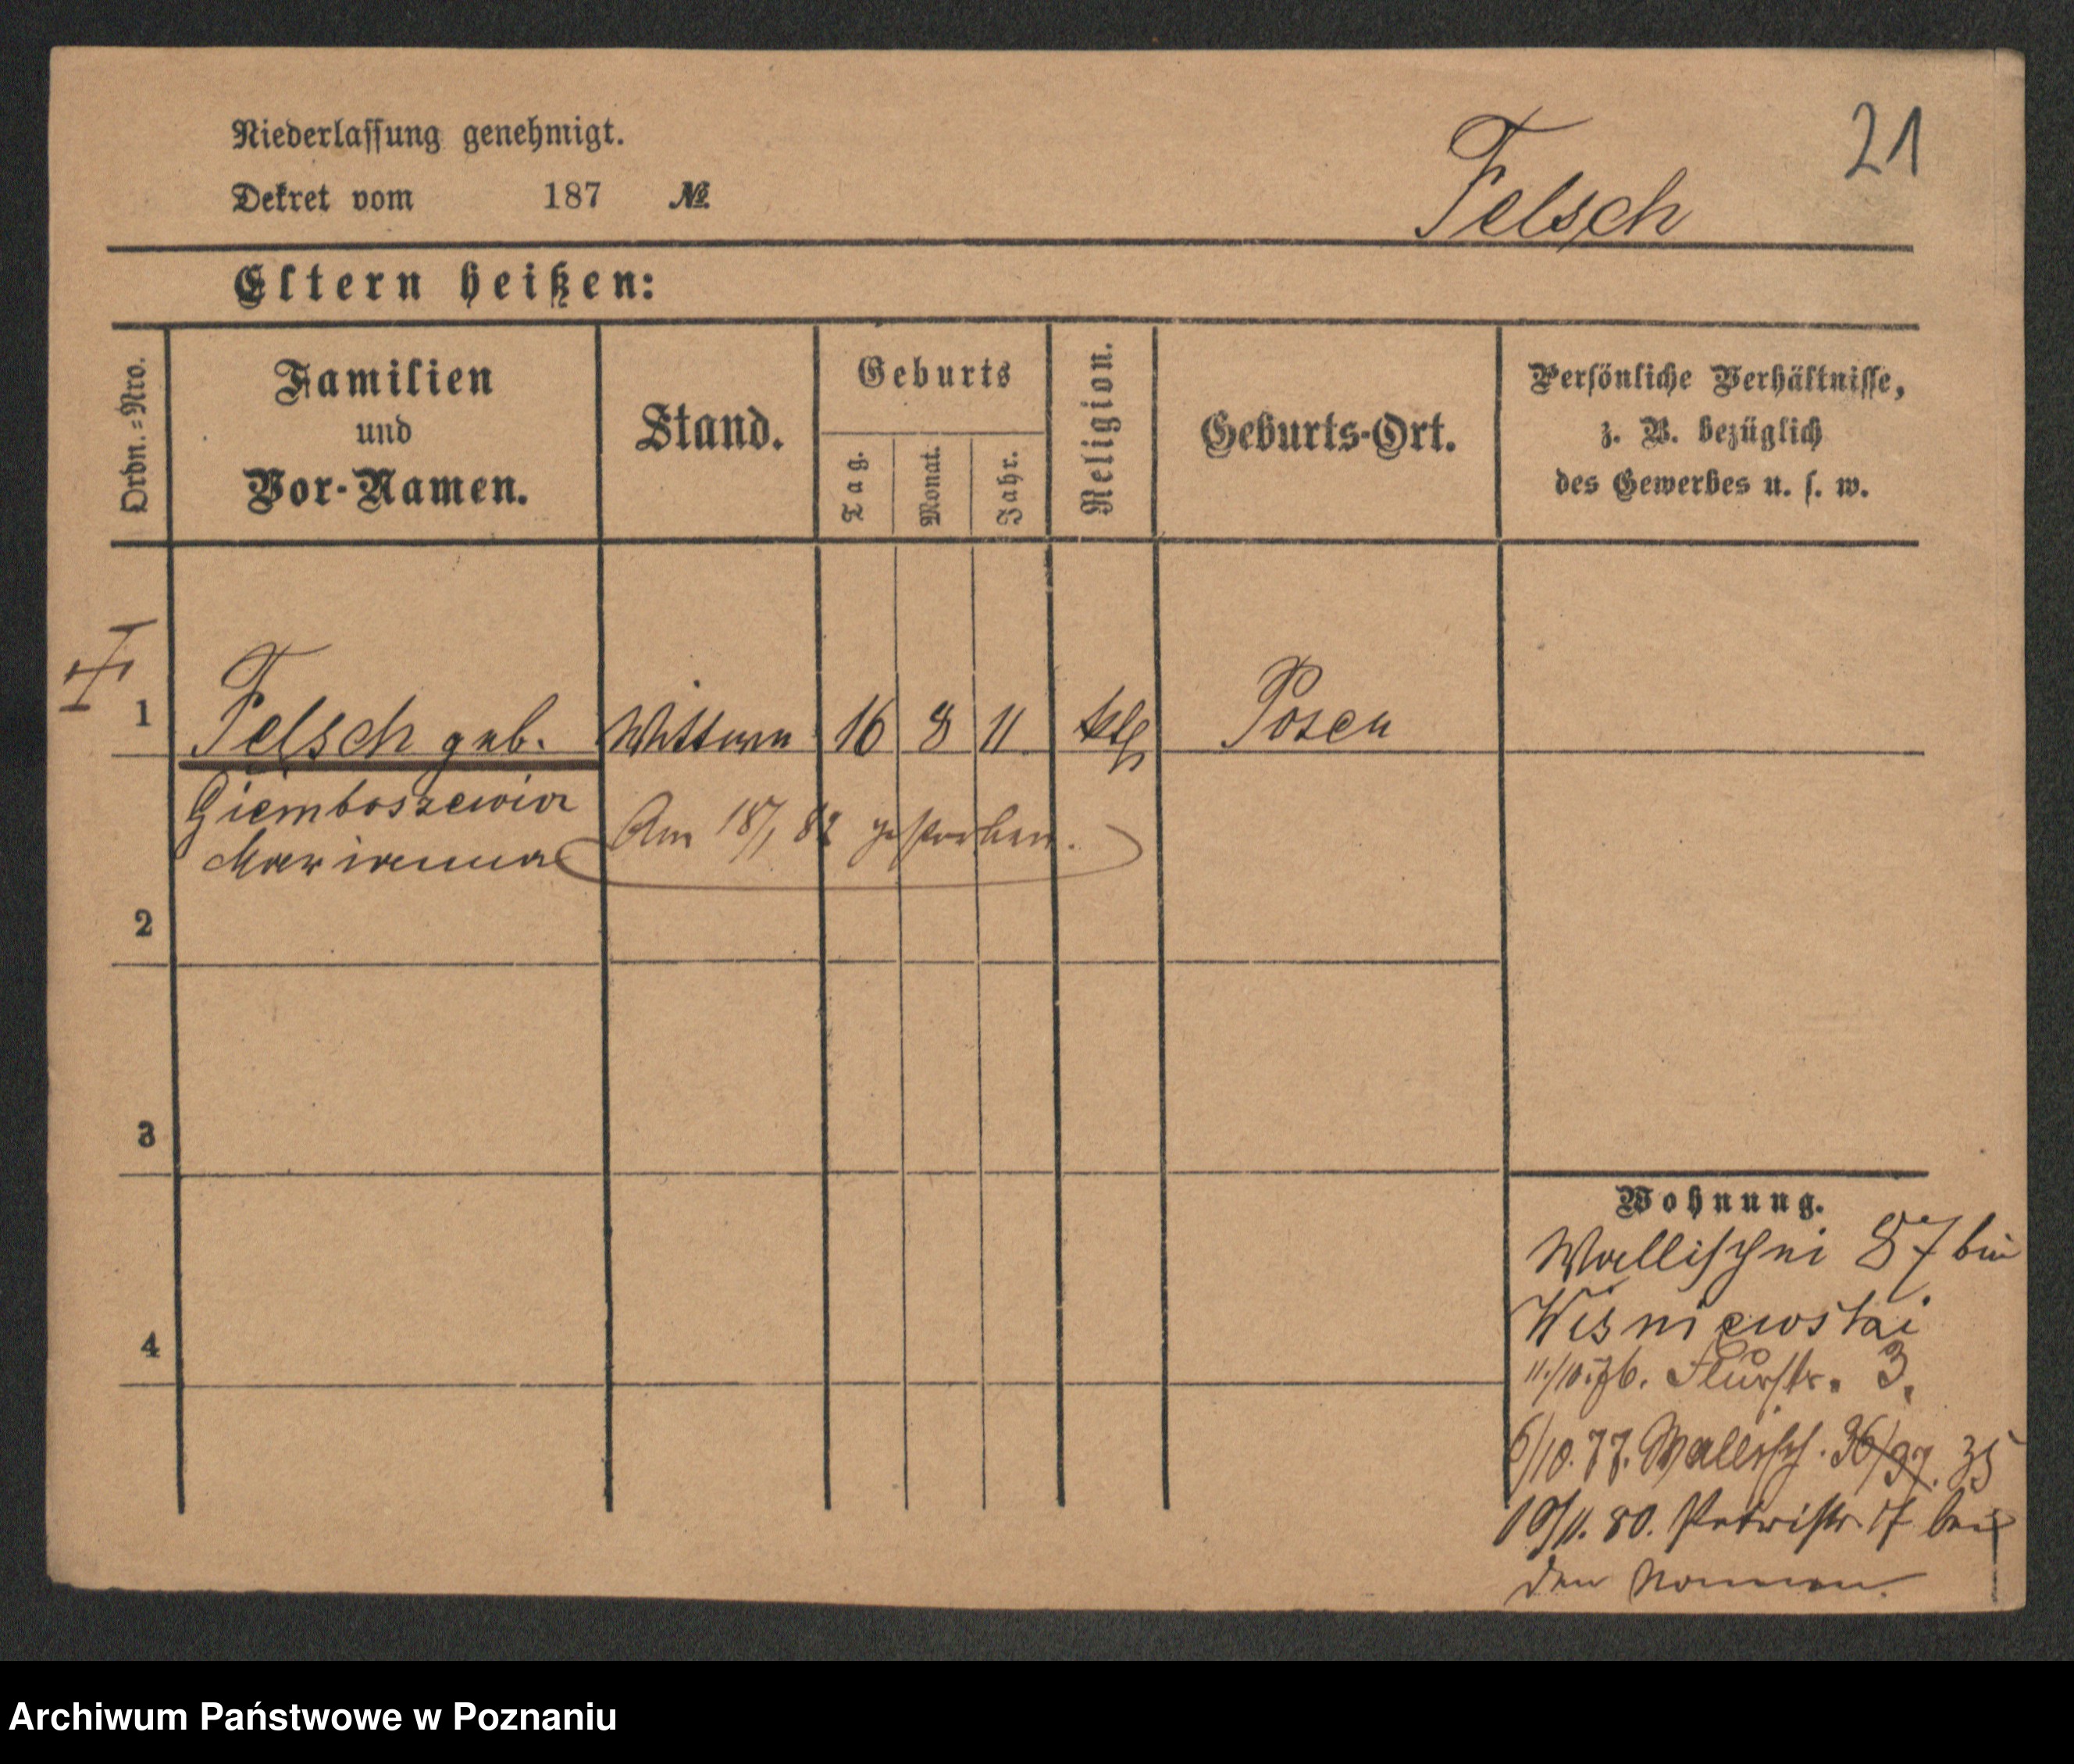 21
Niederlassung genehmigt.
Dekret vom 187 №
Felsch
Eltern heißen:
Ordn.=Nro.
Familien
und
Vor-Namen.
Stand.
Geburts
Tag.
Monat.
Jahr.
Religion.
Geburts-Ort.
Persönliche Verhältnisse,
z. B. bezüglich
des Gewerbes u. s. w.
1 Felsch geb. Wittwe 16 8 11 kth Posen
Giemboszewicz
Marianna
Am 18/1 82 gestorben.
2
3
4
Wohnung.
Wallischei 87 bei
Wisniewski
11./10.76. Flurstr. 3.
6/10.77. Wallisch. 36/37. 35
19/11. 80. Petristr. 17 bei
den Nonnen.
Archiwum Państwowe w Poznaniu